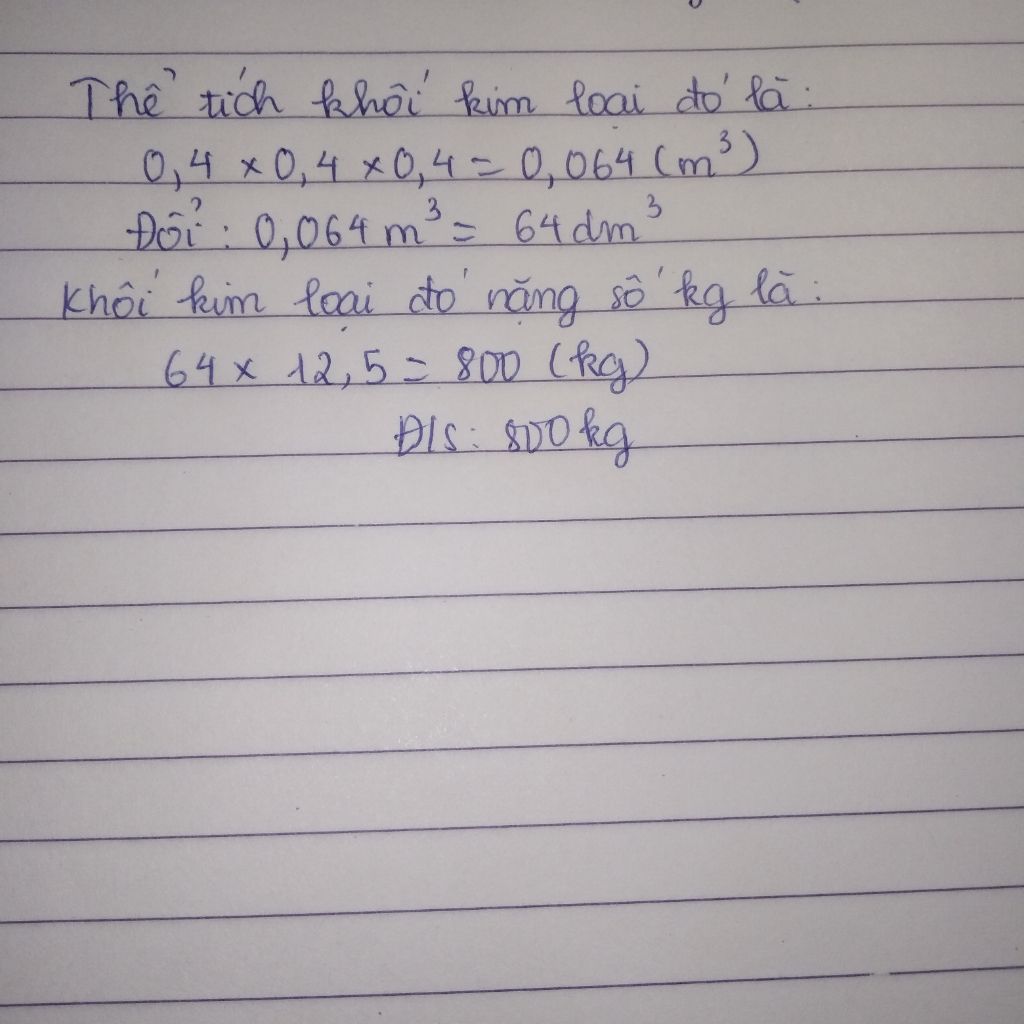 Thể tích khối kim loại đó là:
0,4 x 0,4 x 0,4 = 0,064 (m³)
Đổi: 0,064 m³ = 64 dm³
Khối kim loại đó nặng số kg là:
64 x 12,5 = 800 (kg)
Đ/S: 800 kg